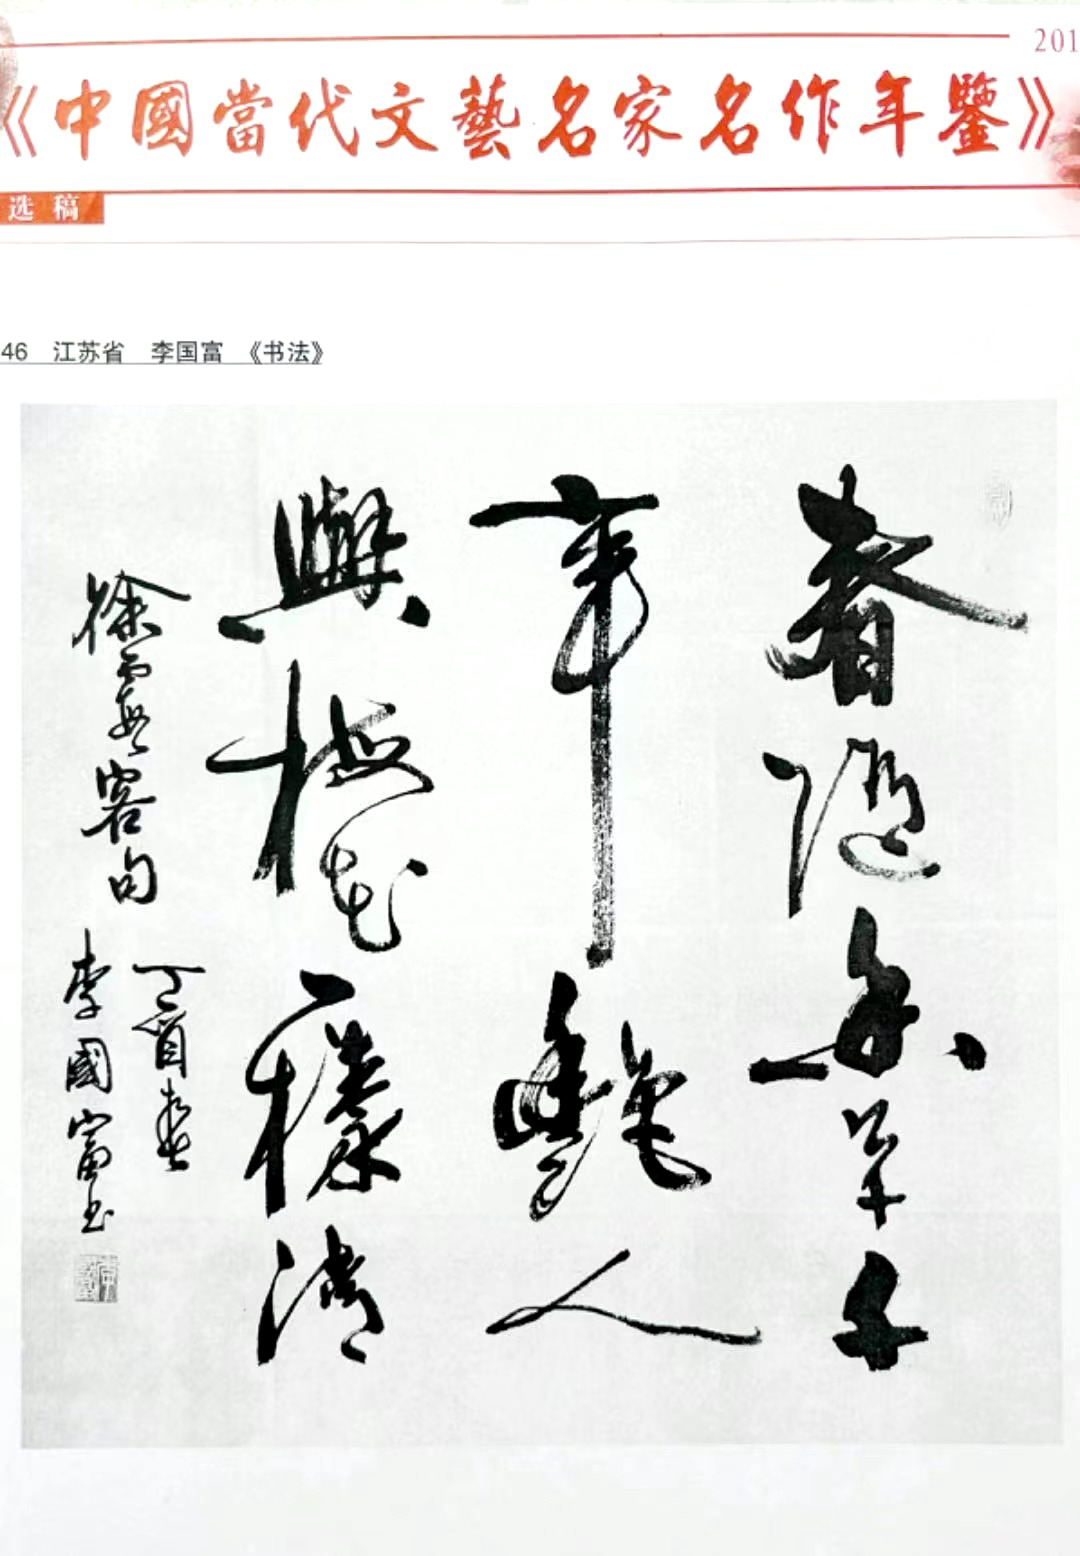 201
《中國當代文藝名家名作年鑒》
选稿
46 江苏省 李国富 《书法》
春隨香草千
年艷人
與梅花一樣清
徐霞客句
丁酉
李國富书